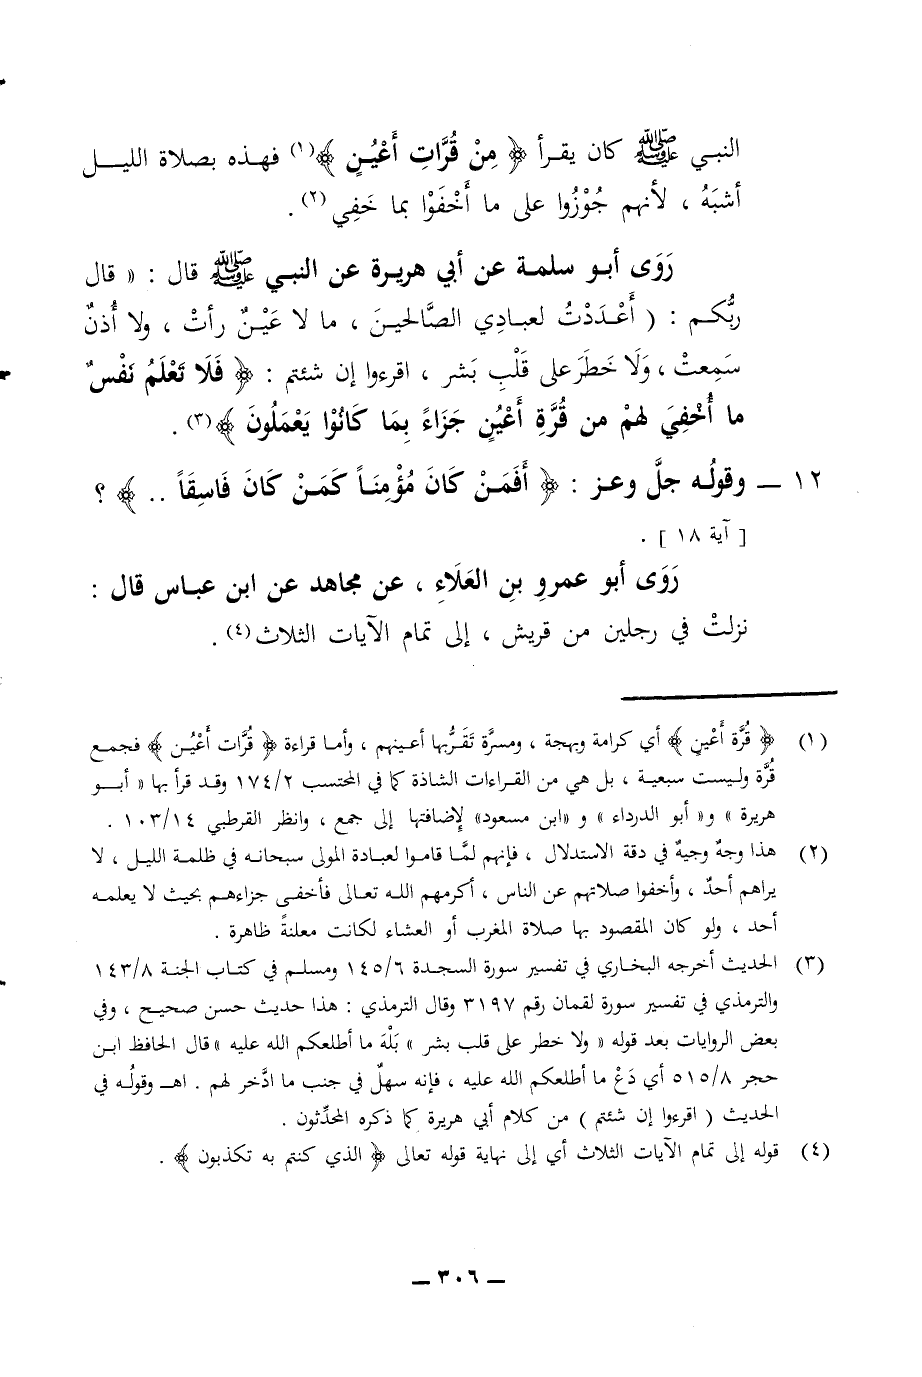 النبي ﷺ كان يقرأ ﴿ مِنْ قُرَّاتِ أَعْيُنٍ ﴾(١) فهذه بصلاة الليل
أشبَهُ ، لأنهم جُوْزُوا على ما أَخْفَوْا بما خَفِي(٢) .
رَوَى أبو سلمة عن أبي هريرة عن النبي ﷺ قال : « قال
ربُّكم : ( أَعْدَدْتُ لعبادِي الصَّالحينَ ، ما لا عَيْنٌ رأتْ ، ولا أُذنٌ
سَمِعتْ ، وَلَا خطَرَ على قَلْبِ بَشر ، اقرءوا إن شئتم : ﴿ فَلَا تَعْلَمُ نَفْسٌ
ما أُخْفِيَ لهمْ من قُرَّةِ أَعْيُنٍ جَزَاءً بِمَا كَانُوْا يَعْمَلُونَ ﴾(٣) .
١٢ ــ وقولُه جلَّ وعز : ﴿ أَفَمَنْ كَانَ مُؤْمِنَاً كَمَنْ كَانَ فَاسِقَاً .. ﴾ ؟
[ آية ١٨ ] .
رَوَى أبو عمروِ بنِ العَلَاءِ ، عن مجاهد عن ابن عباس قال :
نزلتْ في رجلين من قريش ، إلى تمام الآيات الثلاث(٤) .
(١) ﴿ قُرَّة أَعْينٍ ﴾ أي كرامة وبهجة ، ومسرَّة تَقَرُّبها أعينهم ، وأما قراءة ﴿ قُرَّات أَعْيُن ﴾ فجمع
قُرَّة وليست سبعية ، بل هي من القراءات الشاذة كما في المحتسب ١٧٤/٢ وقد قرأ بها « أبو
هريرة » و« أبو الدرداء » و «ابن مسعود» لإضافتها إلى جمع ، وانظر القرطبي ١٠٣/١٤ .
(٢) هذا وجهٌ وجيهٌ في دقة الاستدلال ، فإنهم لمَّا قاموا لعبادة المولى سبحانه في ظلمة الليل ، لا
يراهم أحدٌ ، وأخفوا صلاتهم عن الناس ، أكرمهم الله تعالى فأخفى جزاءهم بحيث لا يعلمه
أحد ، ولو كان المقصود بها صلاة المغرب أو العشاء لكانت معلنةً ظاهرة .
(٣) الحديث أخرجه البخاري في تفسير سورة السجدة ١٤٥/٦ ومسلم في كتاب الجنة ١٤٣/٨
والترمذي في تفسير سورة لقمان رقم ٣١٩٧ وقال الترمذي : هذا حديث حسن صحيح ، وفي
بعض الروايات بعد قوله « ولا خطر على قلب بشر » بَلْهَ ما أطلعكم الله عليه » قال الحافظ ابن
حجر ٥١٥/٨ أي دَعْ ما أطلعكم الله عليه ، فإنه سهلٌ في جنب ما ادَّخر لهم . اهـ وقولُه في
الحديث ( اقرءوا إن شئتم ) من كلام أبي هريرة كما ذكره المحدِّثون .
(٤) قوله إلى تمام الآيات الثلاث أي إلى نهاية قوله تعالى ﴿ الذي كنتم به تكذبون ﴾ .
ــ ٣٠٦ ــ